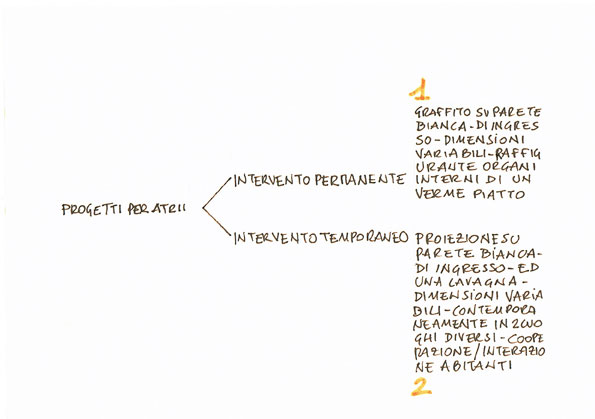 PROGETTI PER ATRII
INTERVENTO PERMANENTE
1
GRAFFITO SU PARETE
BIANCA-DI INGRES
SO-DIMENSIONI
VARIABILI-RAFFIG
URANTE ORGANI
INTERNI DI UN
VERME PIATTO
INTERVENTO TEMPORANEO
PROIEZIONE SU
PARETE BIANCA-
DI INGRESSO-ED
UNA LAVAGNA-
DIMENSIONI VARIA
BILI-CONTEMPORA
NEAMENTE IN 2 LUO
GHI DIVERSI-COOPE
RAZIONE/INTERAZIO
NE ABITANTI
2